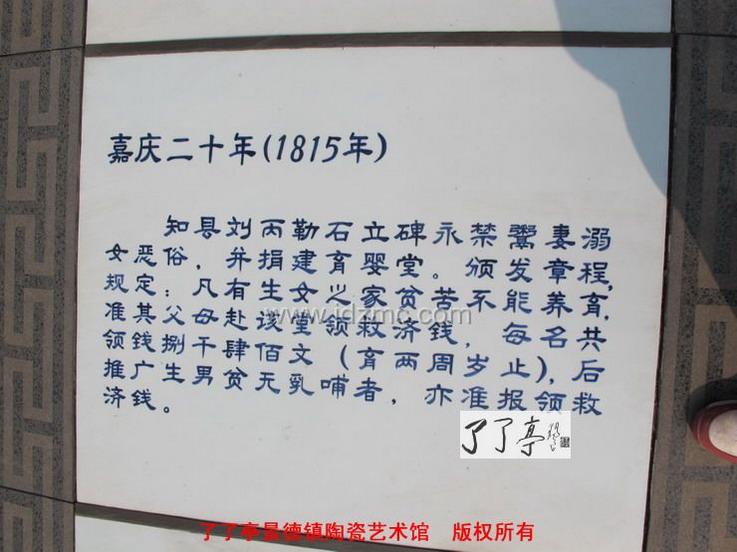 嘉庆二十年(1815年)
知县刘丙勒石立碑永禁鬻妻溺
女恶俗，并捐建育婴堂。颁发章程，
规定：凡有生女之家贫苦不能养育，
准其父母赴该堂领救济钱，每名共
领钱捌千肆佰文（育两周岁止），后
推广生男贫无乳哺者，亦准报领救
济钱。
www.jdzmc.com
了了亭
了了亭景德镇陶瓷艺术馆 版权所有